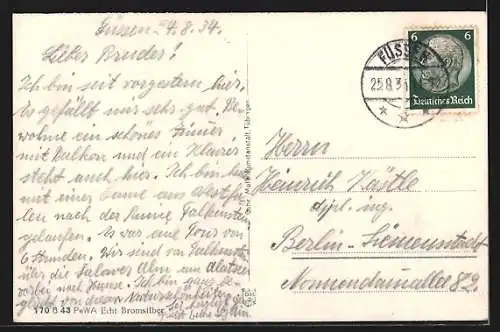 Füssen 24.8.34.
Lieber Bruder!
Ich bin seit vorgestern hier.
Es gefällt mir sehr gut. Be-
wohne ein schönes Zimmer
mit Balkon und ein Klavier
steht auch hier. Ich bin heute
mit einer Dame aus Westfa-
len nach der Ruine Falkenstein
gelaufen. Es war eine Tour von
6 Stunden. Wir sind von Falkenstein
über die Salober Alm am Alatsee
vorbei nach Hause. Ich bin ganz be-
glückt von diesen Naturschönheiten.
170 G 43 PeWA Echt Bromsilber
FÜSSEN
25.8.34
6 6
Deutsches Reich
Herrn
Heinrich Köstle
dipl. ing.
Berlin-Siemensstadt
Nonnendammallee 82.